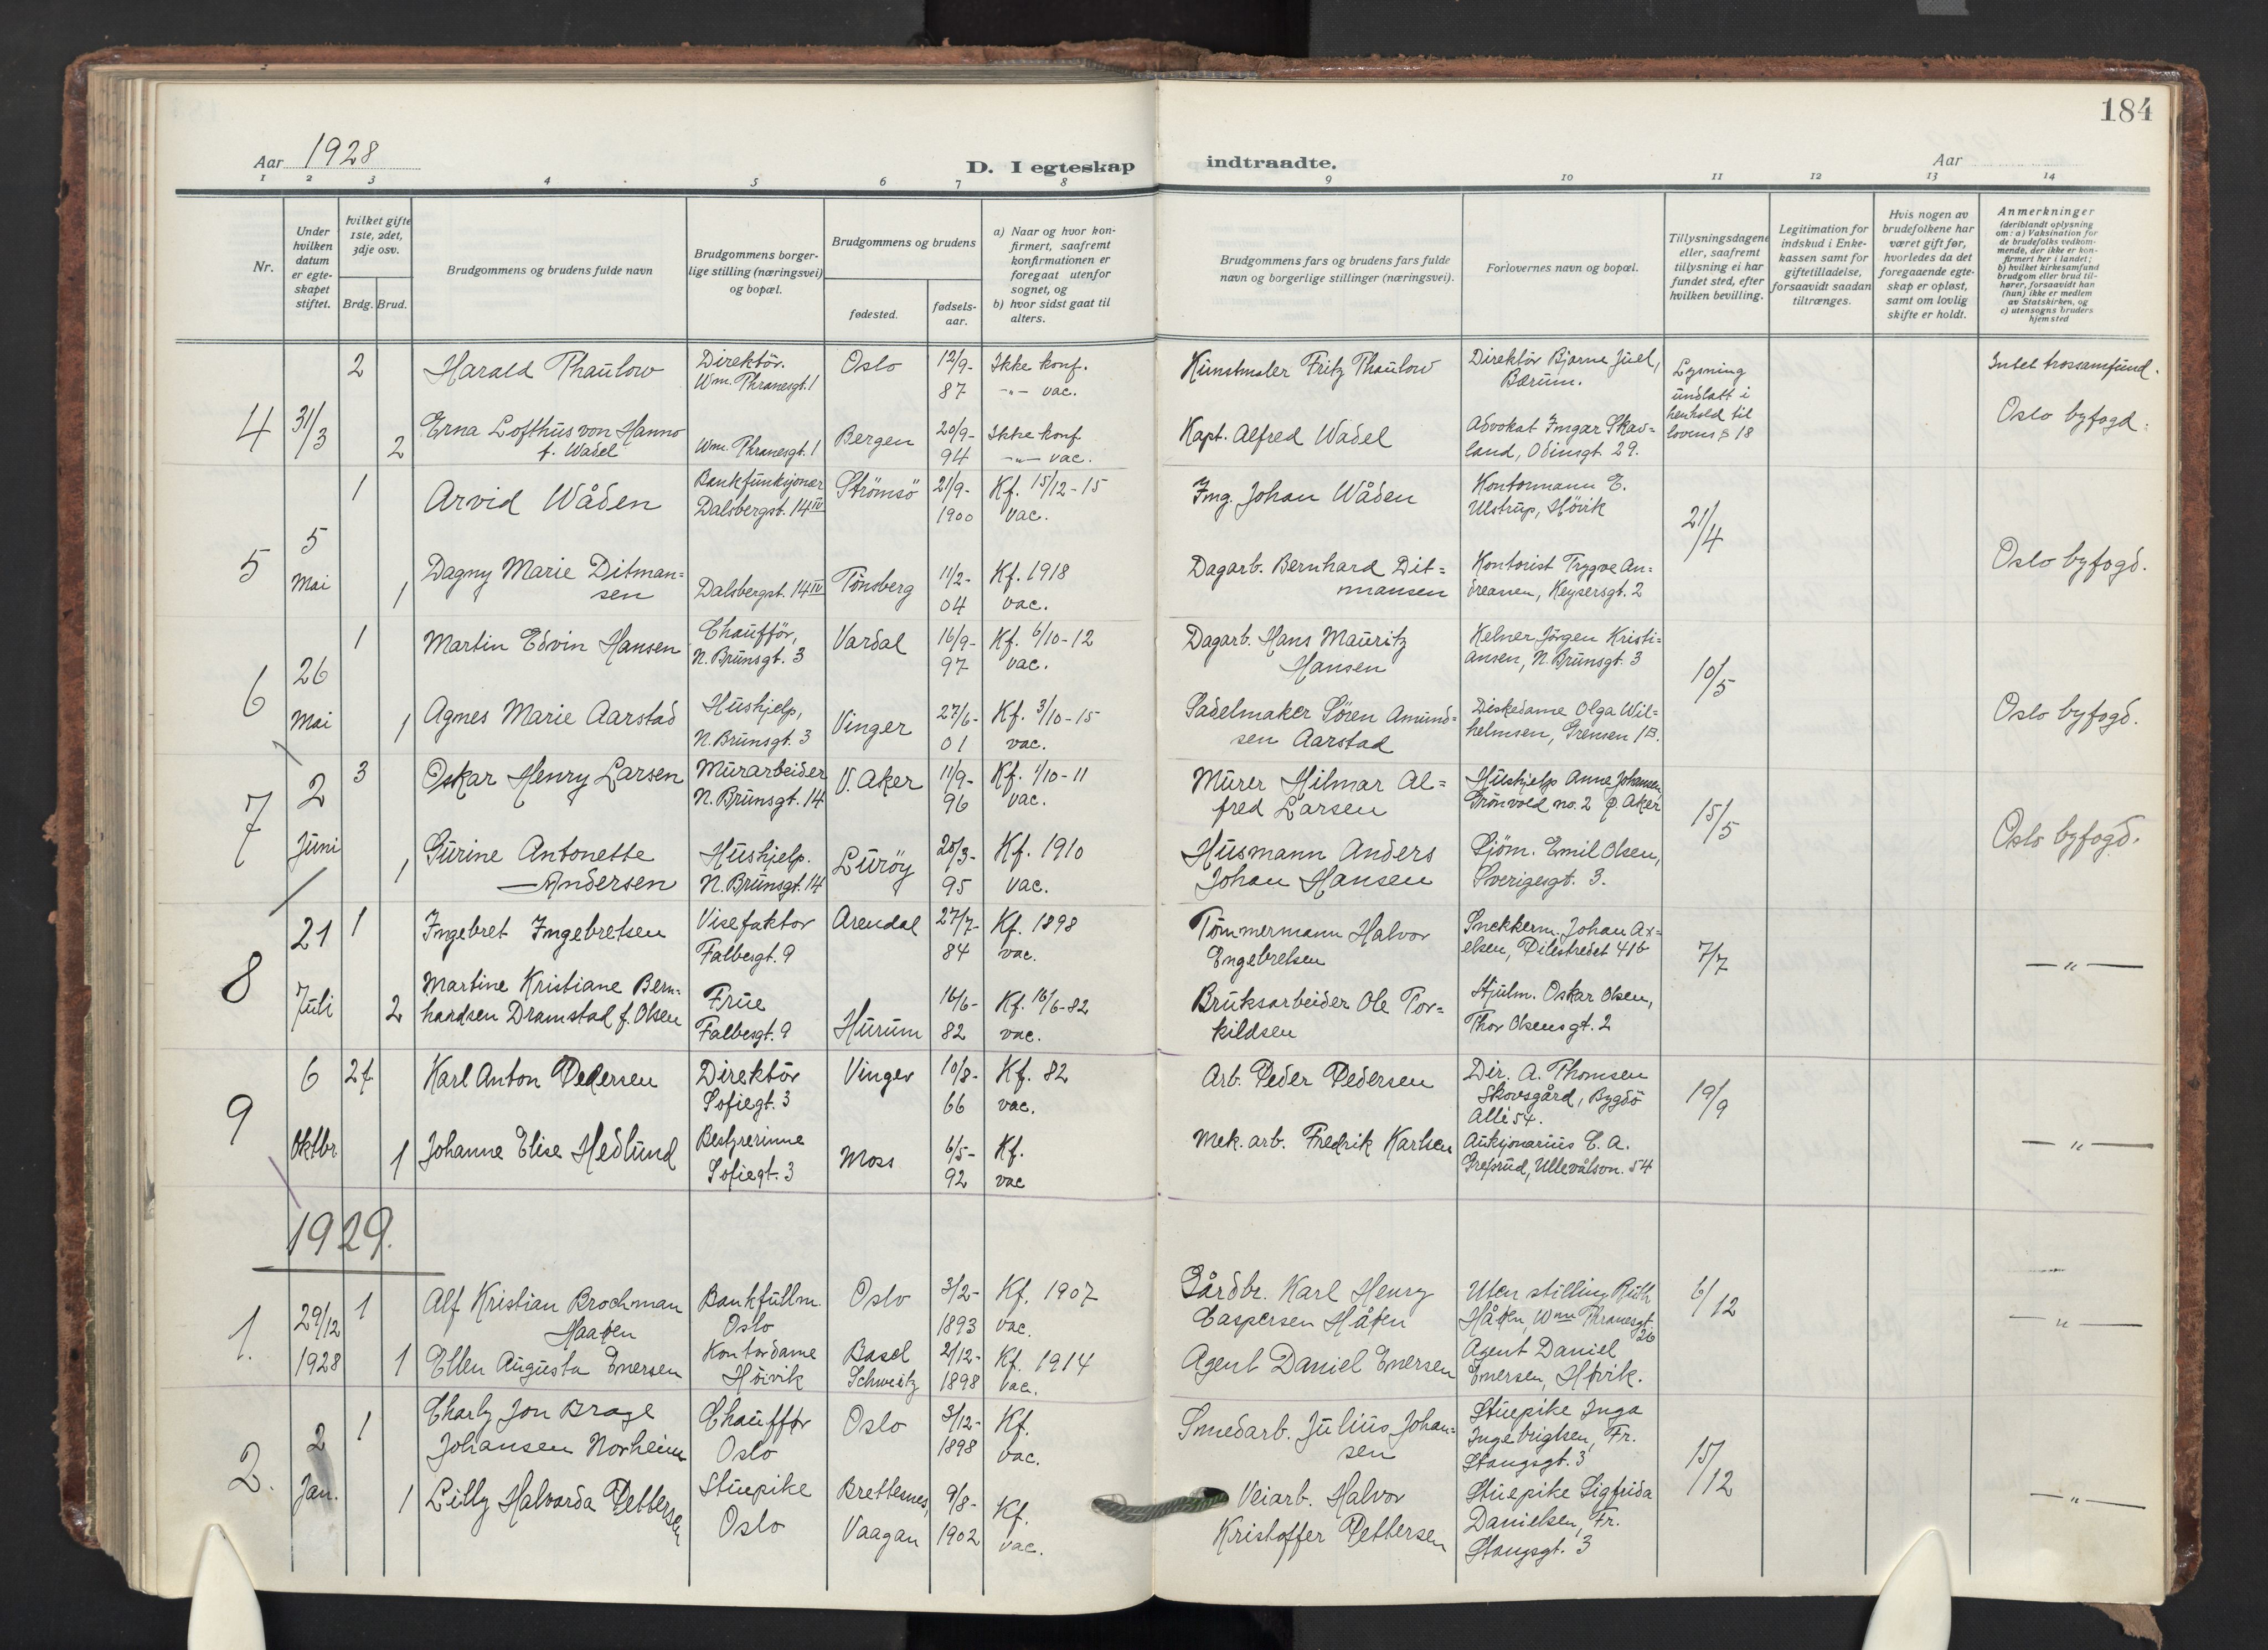 184
Aar 1928
D. I egteskap indtraadte.
Aar
1 2 3 4 5 6 7 8 9 10 11 12 13 14
Nr.
Under hvilken datum er egteskapet stiftet.
hvilket gifte 1ste, 2det, 3dje osv.
Brdg. Brud.
Brudgommens og brudens fulde navn
Brudgommens borgerlige stilling (næringsvei) og bopæl.
Brudgommens og brudens
fødested.
fødselsaar.
a) Naar og hvor konfirmert, saafremt konfirmationen er foregaat utenfor sognet, og
b) hvor sidst gaat til alters.
Brudgommens fars og brudens fars fulde navn og borgerlige stillinger (næringsvei).
Forlovernes navn og bopæl.
Tillysningsdagene eller, saafremt tillysning ei har fundet sted, efter hvilken bevilling.
Legitimation for indskud i Enkekassen samt for giftetilladelse, forsaavidt saadan tiltrænges.
Hvis nogen av brudefolkene har været gift før, hvorledes da det foregaaende egteskap er opløst, samt om lovlig skifte er holdt.
Anmerkninger
(deriblandt oplysning om: a) Vaksination for de brudefolks vedkommende, der ikke er konfirmert her i landet;
b) hvilket kirkesamfund brudgom eller brud tilhører, forsaavidt han (hun) ikke er medlem av Statskirken, og
c) utensogns bruders hjemsted
4 31/3
2 Harald Thaulow Direktör. Wm. Thranesgt. 1 Oslo 12/9-87 Ikke konf. -"- vac. Kunstmaler Fritz Thaulow Direktör Bjarne Juel, Bærum. Lysning undlatt i henhold til lovens § 18 Intet trossamfund.
2 Erna Lofthus von Hanno f. Wadel Wm. Thranesgt. 1 Bergen 20/9-94 Ikke konf -"- vac. Kapt. Alfred Wadel Advokat Ingar Skavland, Odinsgt. 29. Oslo byfogd.
5 5 Mai
1 Arvid Wåden Bankfunksjonær Dalsbergst. 14 IV Strömsö 21/9-1900 Kf. 15/12-15 vac. Ing. Johan Wåden Kontormann E. Ulstrup, Hövik 21/4
1 Dagny Marie Ditmansen Dalsbergst. 14 IV Tönsberg 11/2-04 Kf. 1918 vac. Dagarb. Bernhard Ditmansen Kontorist Trygve Andreassen, Keysersgt. 2 Oslo byfogd.
6 26 Mai
1 Martin Edvin Hansen Chaufför, N. Brunsgt. 3 Vardal 16/9-97 Kf. 6/10-12 vac. Dagarb. Hans Mauritz Hansen Kelner Jörgen Kristiansen, N. Brunsgt. 3 10/5
1 Agnes Marie Aarstad Hushjelp, N. Brunsgt. 3 Vinger 27/6-01 Kf. 3/10-15 vac. Sadelmaker Sören Amundsen Aarstad Diskedame Olga Wilhelmsen, Grensen 1B. Oslo byfogd.
7 2 Juni
3 Oskar Henry Larsen Murarbeider N. Brunsgt. 14 V. Aker 11/9-96 Kf. 1/10-11 vac. Murer Hilmar Alfred Larsen Hushjelp Anne Johansen, Grönvold no. 2 Ø. Aker 15/5
1 Gurine Antonette Andersen Hushjelp. N. Brunsgt. 14 Luröy 25/3-95 Kf. 1910 vac. Husmann Anders Johan Hansen Sjöm. Emil Olsen, Sverigesgt. 3. Oslo byfogd.
8 21 Juli
1 Ingebret Ingebretsen Visefaktor Falbesgt. 9 Arendal 27/7-84 Kf. 1898 vac. Tömmermann Halvor Engebretsen Snekkerm. Johan Axelsen, Pilestredet 41b 7/7
2 Martine Kristiane Bernhardsen Dramstad f. Olsen Frue Falbesgt. 9 Hurum 16/6-82 Kf. 16/6-82 vac. Bruksarbeider Ole Torkildsen Hjulm. Oskar Olsen, Thor Olsensgt. 2 —"—
9 6 Oktbr
2 f. Karl Anton Pedersen Direktör Sofiegt. 3 Vinger 10/8-66 Kf. 82 vac. Arb. Peder Pedersen Dir. A. Thomsen Skovsgård, Bygdö Allé 54. 19/9
1 Johanne Elise Hedlund Bestyrerinne Sofiegt. 3 Moss 6/5-92 Kf. vac Mek. arb. Fredrik Karlsen Auksjonarius E. A. Grefsrud, Ullevålsvn. 54 —"—
1929.
1. 29/12 1928
1 Alf Kristian Brochman Haaken Bankfullm. Oslo Oslo 3/2-1893 Kf. 1907 vac. Gårdbr. Karl Henry Caspersen Håken Uten stilling Ruth Håken, Wm Thranesgt. 26 6/12
1 Ellen Augusta Enersen Kontordame Höivik Basel Schweitz 2/12-1898 Kf. 1914 vac. Agent Daniel Enersen Agent Daniel Enersen, Høvik. —"—
2. 2 Jan.
1 Charly Jon Brage Johansen Norheim Chauffør Oslo Oslo 3/12-1898 Kf. vac. Smedarb. Julius Johansen Stuepike Inga Ingebrigtsen, Fr. Stangsgt. 3 15/12
1 Lilly Halvarda Pettersen Stuepike Oslo Brettesnes, Vaagan 9/8-1902 Kf. vac. Veiarb. Halvor Kristoffer Pettersen Stuepike Sigfrida Danielsen, Fr. Stangsgt. 3 —"—